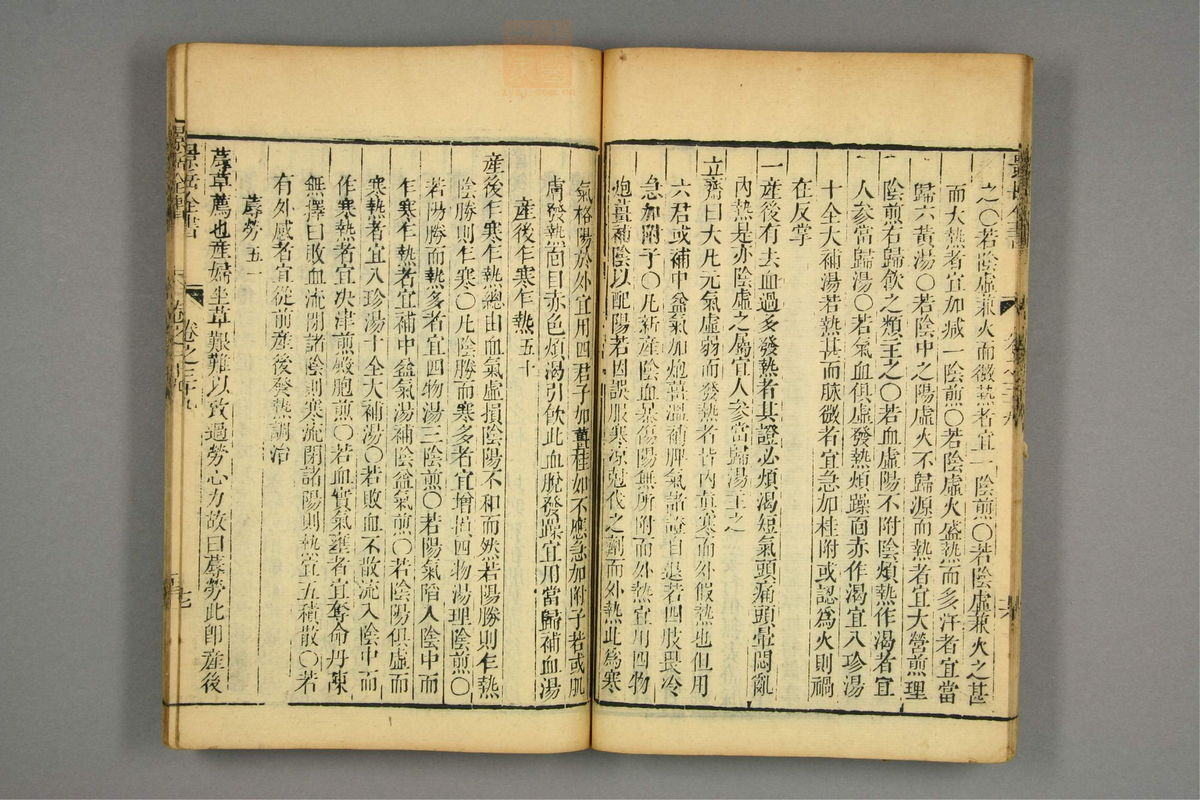 之〇若陰虛兼火而微熱者宜一陰煎〇若陰虛兼火之甚
而大熱者宜加減一陰煎〇若陰虛火盛熱而多汗者宜當
歸六黃湯〇若陰中之陽虛火不歸源而熱者宜大營煎理
陰煎右歸飲之類主之〇若血虛陽不附陰煩熱作渴者宜
人參當歸湯〇若氣血俱虛發熱煩躁面赤作渴宜八珍湯
十全大補湯若熱甚而脉微者宜急加桂附或認爲火則禍
在反掌
一產後有去血過多發熱者其證必煩渴短氣頭痛頭暈悶亂
內熱是亦陰虛之屬宜人參當歸湯主之
立齋曰大凡元氣虛弱而發熱者皆內眞寒而外假熱也但用
六君或補中益氣加炮薑溫補脾氣諸證自退若四肢畏冷
急加附子〇凡新產陰血暴傷陽無所附而外熱宜用四物
炮薑補陰以配陽若因誤服寒凉剋伐之劑而外熱此爲寒
氣格陽於外宜用四君子加薑桂如不應急加附子若或肌
膚發熱面目赤色煩渴引飲此血脫發躁宜用當歸補血湯
產後乍寒乍熱五十
產後乍寒乍熱總由血氣虛損陰陽不和而然若陽勝則乍熱
陰勝則乍寒〇凡陰勝而寒多者宜增損四物湯理陰煎〇
若陽勝而熱多者宜四物湯三陰煎〇若陽氣陷入陰中而
乍寒乍熱者宜補中益氣湯補陰益氣煎〇若陰陽俱虛而
寒熱者宜八珍湯十全大補湯〇若敗血不散流入陰中而
作寒熱者宜决津煎殿胞煎〇若血實氣壅者宜奪命丹陳
無擇曰敗血流閉諸陰則寒流閉諸陽則熱宜五積散〇若
有外感者宜從前產後發熱調治
蓐勞五一
蓐草薦也產婦坐草艱難以致過勞心力故曰蓐勞此即產後
景岳全書
卷之三十九
七